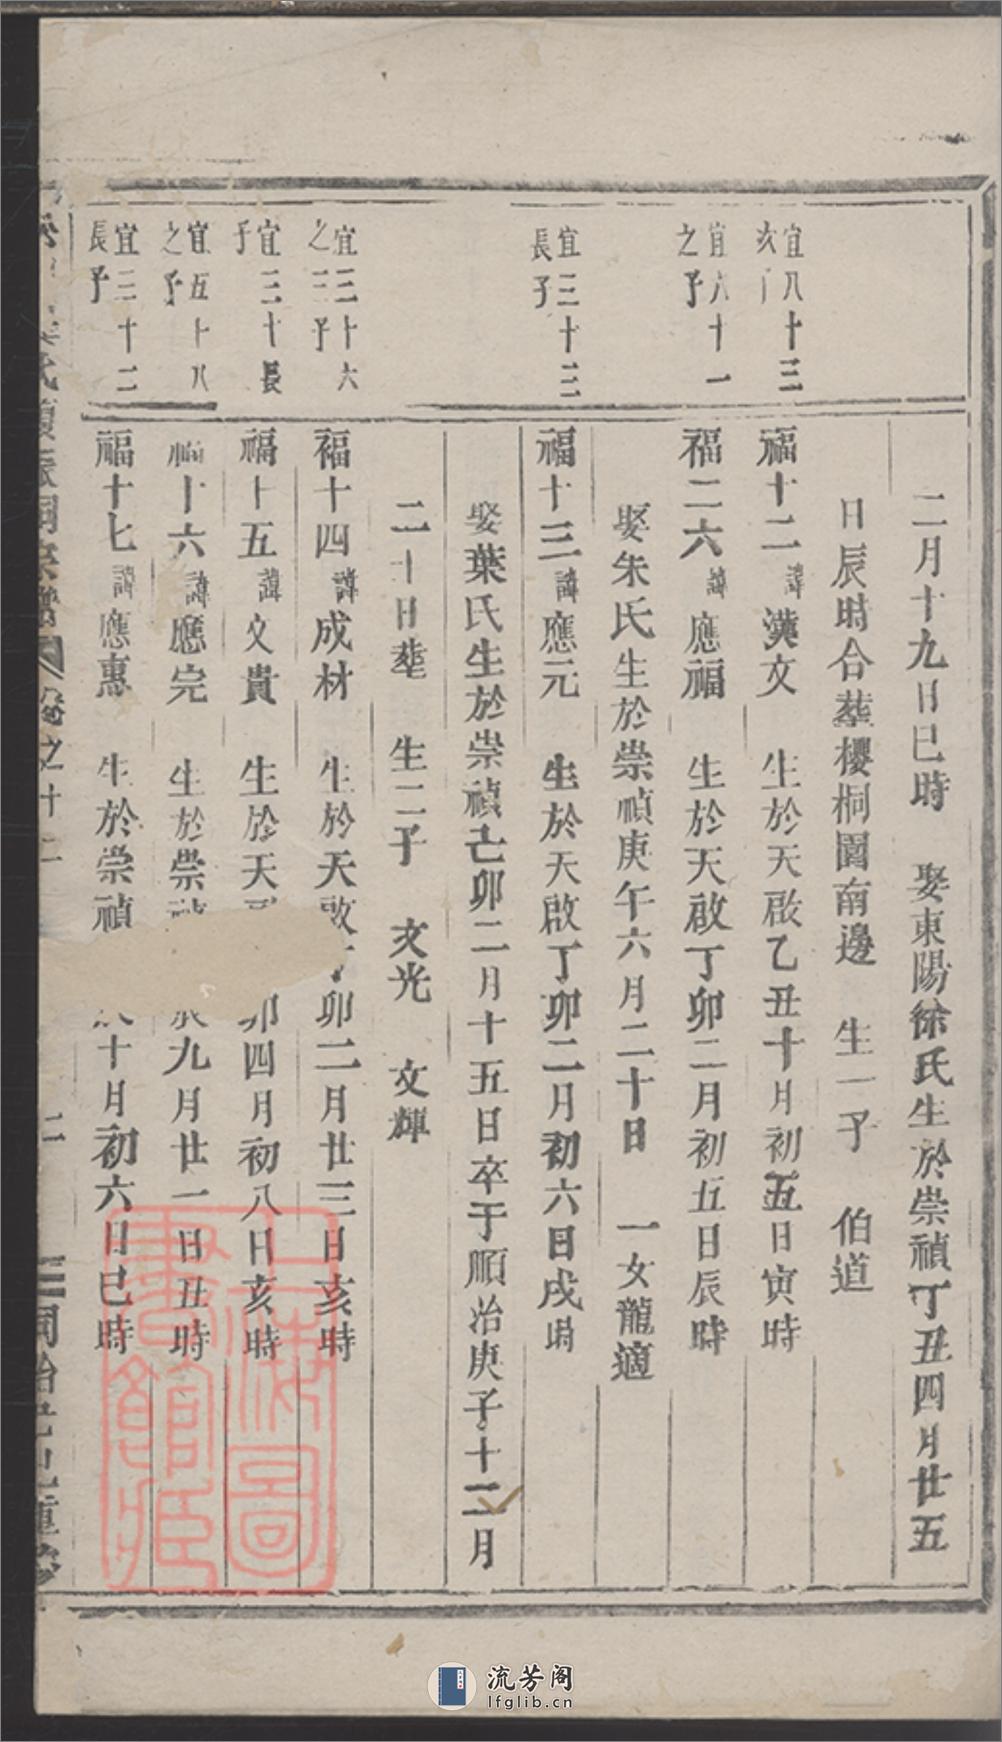 二月十九日巳時　娶東陽徐氏生於崇禎丁丑四月廿五
日辰時合葬櫻桐園南邊　生一子　伯道
宜八十三
福十二諱漢文　生於天啟乙丑十月初五日寅時
宜六十一
之子
福二六諱應福　生於天啟丁卯二月初五日辰時
娶朱氏生於崇禎庚午六月二十日　一女龍適
宜三十三
長子
福十三諱應元　生於天啟丁卯二月初六日戌時
娶葉氏生於崇禎己卯二月十五日卒于順治庚子十二月
二十日葬　生二子　文光　文輝
宜三十六
之二子
福十四諱成材　生於天啟丁卯二月廿三日亥時
宜三十長
子
福十五諱文貴　生於天卯四月初八日亥時
宜五十八
之子
福十六諱應完　生於崇禎辰九月廿一日丑時
宜三十二
長子
福十七諱應惠　生於崇禎十月初六日巳時
氏復振同宗譜　卷之十二　二　同治己巳重修
上海圖書館藏
流芳阁
lfglib.cn